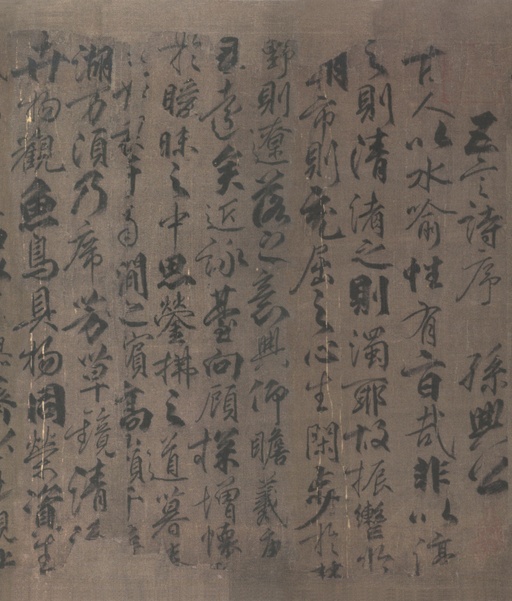 五言詩序 孫興公
古人以水喻性有旨哉非以渟
之則清淆之則濁耶故振轡於
朝市則充屈之心生閑步於林
野則遼落之意興仰瞻羲唐
遠矣近詠臺向顧探增懷
於曖昧之中思瑩拂之道暮春
于南澗之濱高嶺千尋
湖万頃乃席芳草鏡清流
卉物觀魚鳥具物同榮資生